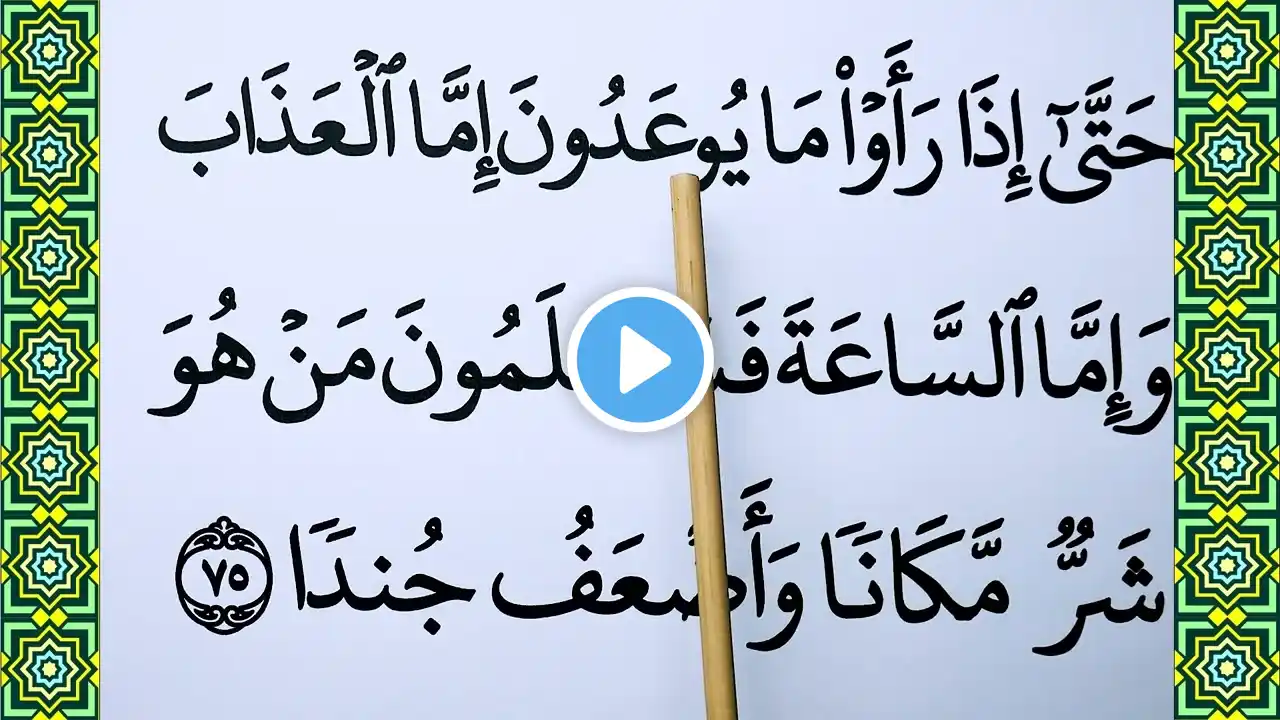 حَتَّىٰٓ إِذَا رَأَوْا۟ مَا يُوعَدُونَ إِمَّا ٱلْعَذَابَ
وَإِمَّا ٱلسَّاعَةَ مَنْ هُوَ
شَرٌّ مَّكَانًا وَأَضْعَفُ جُندًا ٧٥